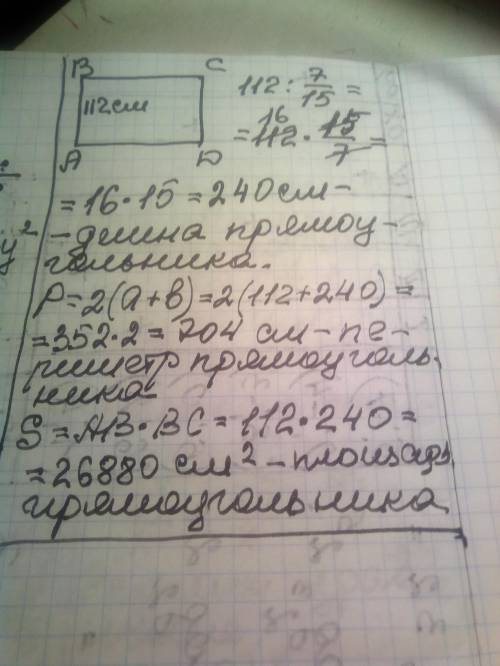 B C 112 : 7/15 =
112см
16
= 112 · 15/7 =
A D
= 16 · 15 = 240 см -
- длина прямоу-
гольника.
P = 2(a+b) = 2(112+240) =
= 352 · 2 = 704 см - пе-
риметр прямоуголь-
ника
S = AB · BC = 112 · 240 =
= 26880 см² - площадь
прямоугольника
y²